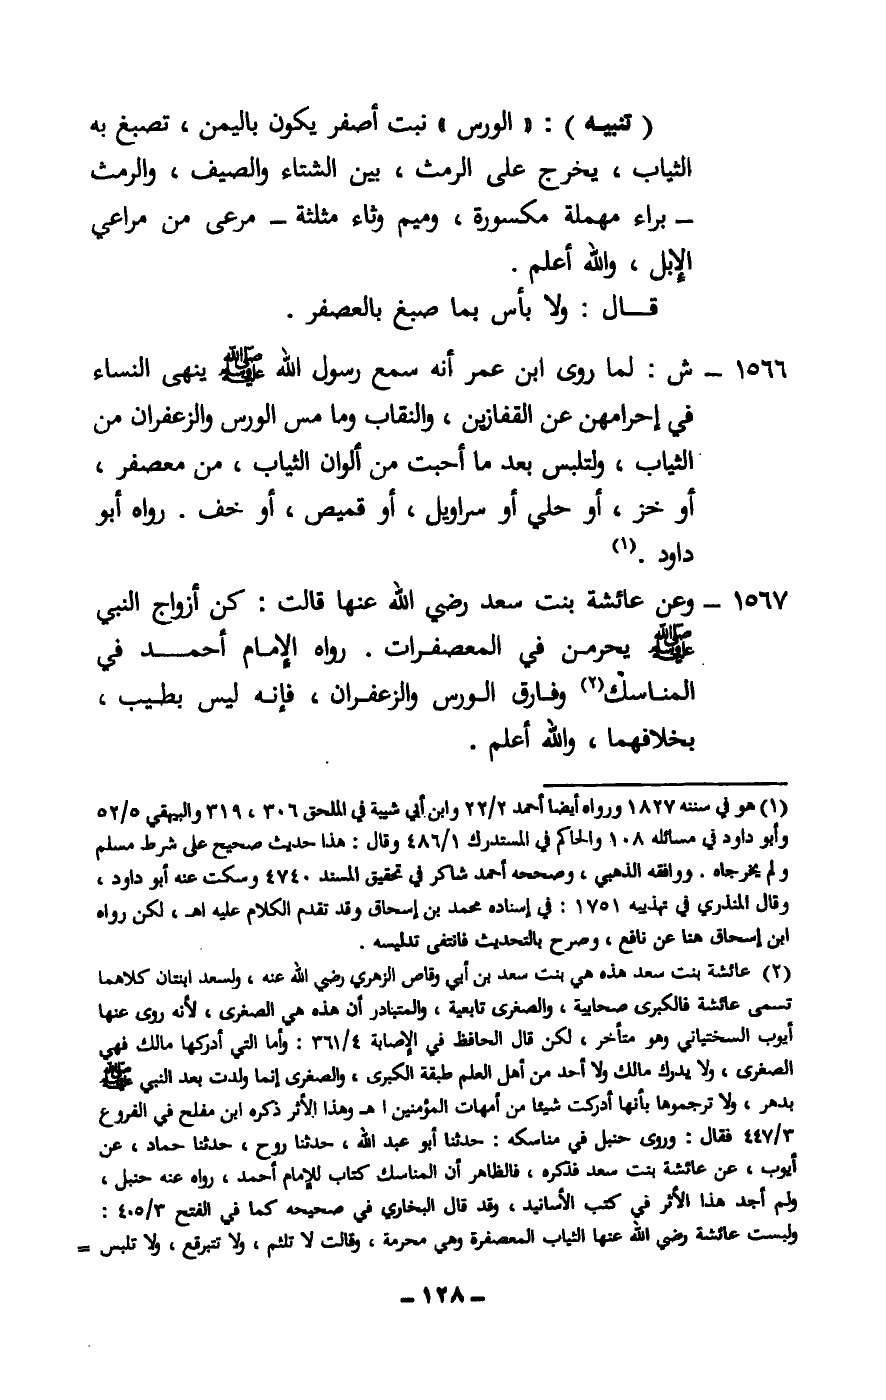 ( تنبيـه ) : « الورس » نبت أصفر يكون باليمن ، تصبغ به
الثياب ، يخرج على الرمث ، بين الشتاء والصيف ، والرمث
ــ براء مهملة مكسورة ، وميم وثاء مثلثة ــ مرعى من مراعي
الإبل ، والله أعلم .
قـــال : ولا بأس بما صبغ بالعصفر .
١٥٦٦ ــ ش : لما روى ابن عمر أنه سمع رسول الله ﷺ ينهى النساء
في إحرامهن عن القفازين ، والنقاب وما مس الورس والزعفران من
الثياب ، ولتلبس بعد ما أحبت من ألوان الثياب ، من معصفر ،
أو خز ، أو حلي أو سراويل ، أو قميص ، أو خف . رواه أبو
داود .(١)
١٥٦٧ ــ وعن عائشة بنت سعد رضي الله عنها قالت : كن أزواج النبي
ﷺ يحرمـن في المعصفـرات . رواه الإمـام أحمـــد في
المنـاسك(٢) وفـارق الـورس والزعفـران ، فإنـه ليس بطيـب ،
بخلافهما ، والله أعلم .
(١) هو في سننه ١٨٢٧ ورواه أيضا أحمد ٢٢/٢ وابن أبي شيبة في الملحق ٣٠٦ ، ٣١٩ والبيهقي ٥٢/٥
وأبو داود في مسائله ١٠٨ والحاكم في المستدرك ٤٨٦/١ وقال : هذا حديث صحيح على شرط مسلم
ولم يخرجاه . ووافقه الذهبي ، وصححه أحمد شاكر في تحقيق المسند ٤٧٤٠ وسكت عنه أبو داود ،
وقال المنذري في تهذيبه ١٧٥١ : في إسناده محمد بن إسحاق وقد تقدم الكلام عليه اهـ ، لكن رواه
ابن إسحاق هنا عن نافع ، وصرح بالتحديث فانتفى تدليسه .
(٢) عائشة بنت سعد هذه هي بنت سعد بن أبي وقاص الزهري رضي الله عنه ، ولسعد ابنتان كلاهما
تسمى عائشة فالكبرى صحابية ، والصغرى تابعية ، والمتبادر أن هذه هي الصغرى ، لأنه روى عنها
أيوب السختياني وهو متأخر ، لكن قال الحافظ في الإصابة ٣٦١/٤ : وأما التي أدركها مالك فهي
الصغرى ، ولا يدرك مالك ولا أحد من أهل العلم طبقة الكبرى ، والصغرى إنما ولدت بعد النبي ﷺ
بدهر ، ولا ترجموها بأنها أدركت شيئا من أمهات المؤمنين ا هـ وهذا الأثر ذكره ابن مفلح في الفروع
٤٤٧/٣ فقال : وروى حنبل في مناسكه : حدثنا أبو عبد الله ، حدثنا روح ، حدثنا حماد ، عن
أيوب ، عن عائشة بنت سعد فذكره ، فالظاهر أن المناسك كتاب للإمام أحمد ، رواه عنه حنبل ،
ولم أجد هذا الأثر في كتب الأسانيد ، وقد قال البخاري في صحيحه كما في الفتح ٤٠٥/٣ :
ولبست عائشة رضي الله عنها الثياب المعصفرة وهي محرمة ، وقالت لا تلثم ، ولا تتبرقع ، ولا تلبس =
ــ ١٢٨ ــ